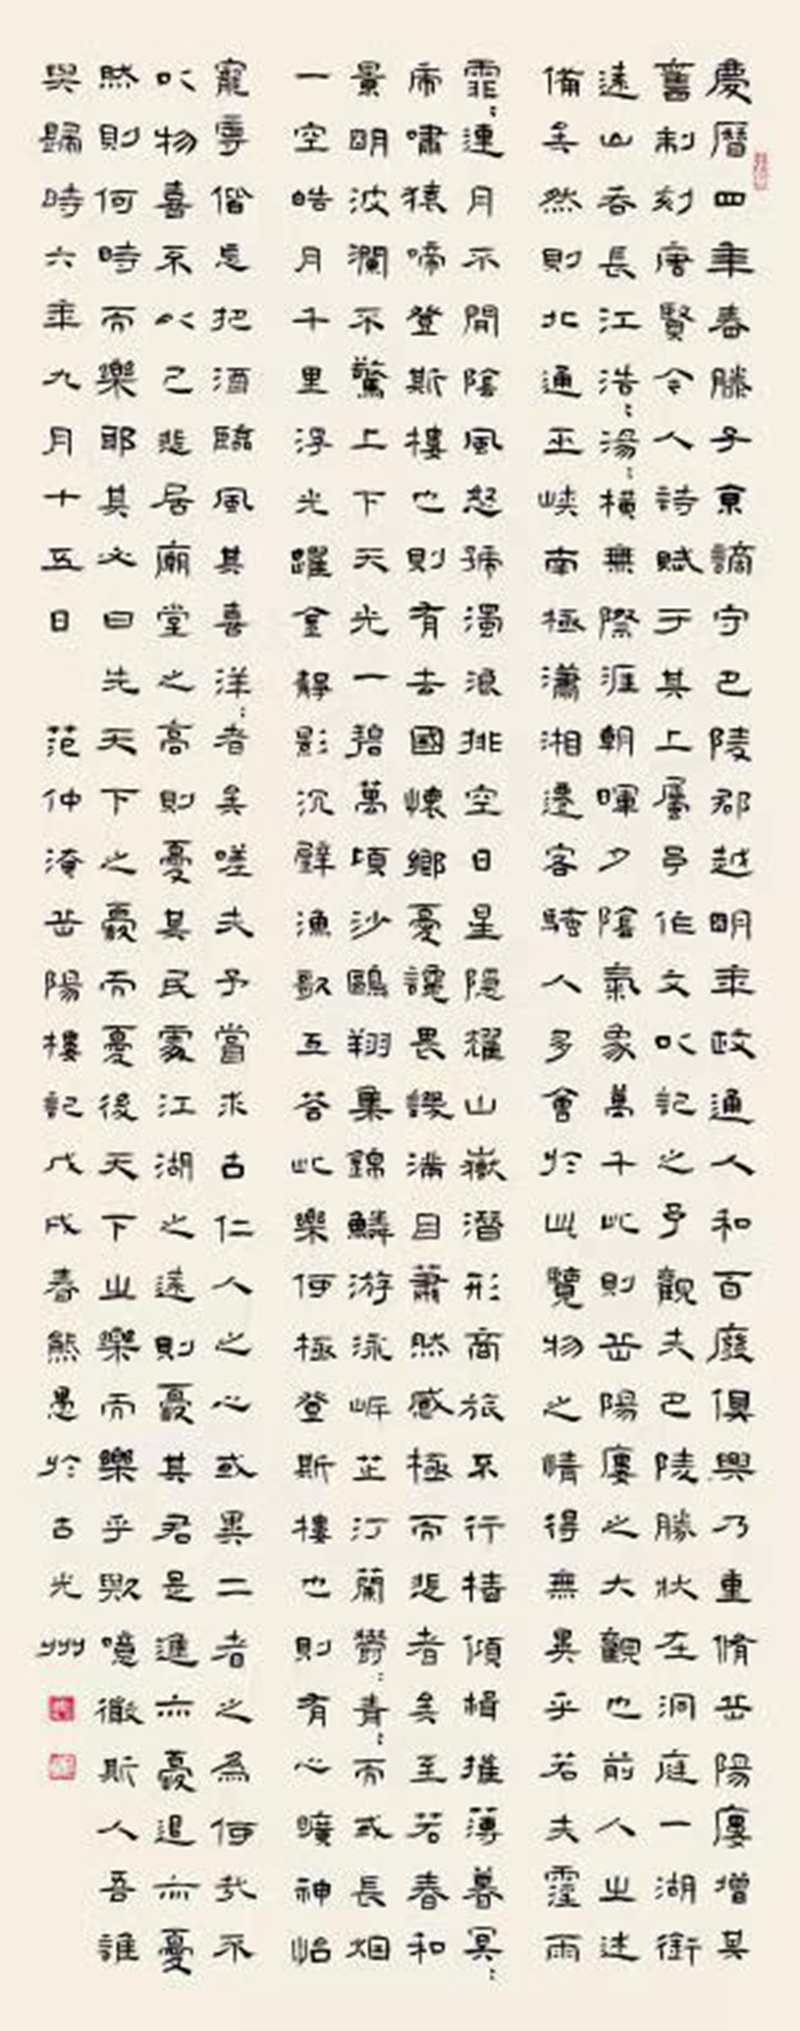 慶曆四年春滕子京謫守巴陵郡越明年政通人和百廢俱興乃重脩岳陽廔增其
舊制刻唐賢令人詩賦于其上屬予作文以記之予觀夫巴陵勝狀在洞庭一湖銜
遠山吞長江浩〻湯〻橫無際涯朝暉夕陰氣象萬千此則岳陽廔之大觀也前人之述
備矣然則北通巫峽南極瀟湘遷客騷人多會於此覽物之情得無異乎若夫霪雨
霏〻連月不開陰風怒號濁浪排空日星隱耀山嶽潛形商旅不行檣傾楫摧薄暮冥〻
虎嘯猿啼登斯樓也則有去國懷鄉憂讒畏譏滿目蕭然感極而悲者矣至若春和
景明波瀾不驚上下天光一碧萬頃沙鷗翔集錦鱗游泳岸芷汀蘭鬱〻青〻而或長烟
一空皓月千里浮光躍金靜影沉璧漁歌互答此樂何極登斯樓也則有心曠神怡
寵辱偕忘把酒臨風其喜洋〻者矣嗟夫予嘗求古仁人之心或異二者之為何哉不
以物喜不以己悲居廟堂之高則憂其民處江湖之遠則憂其君是進亦憂退亦憂
然則何時而樂耶其必曰先天下之憂而憂後天下之樂而樂乎歟噫微斯人吾誰
與歸時六年九月十五日 范仲淹岳陽樓記戊戌春熊愚於古光州